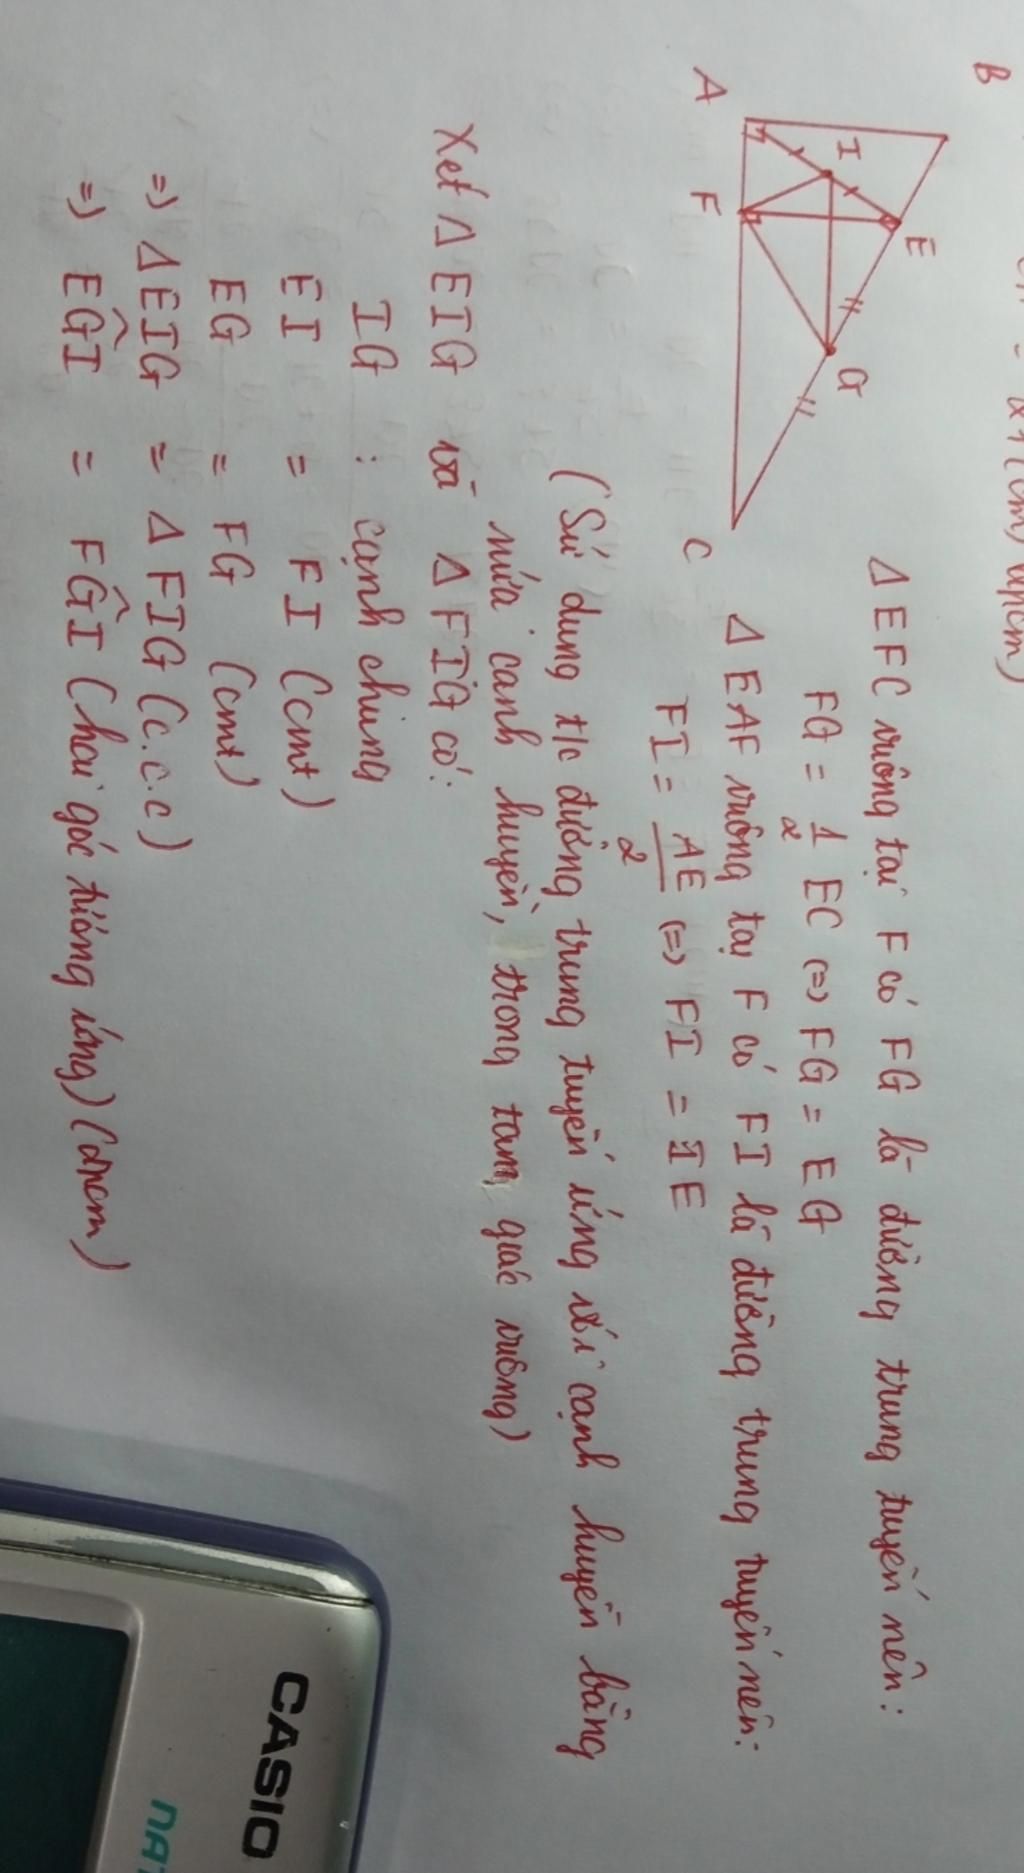 B
A
I
E
F
G
C
Δ EFC vuông tại F có FG là đường trung tuyến nên:
FG = 1/2 EC (=) FG = EG
Δ EAF vuông tại F có FI là đường trung tuyến nên:
FI = AE/2 (=) FI = IE
(Sử dụng t/c đường trung tuyến ứng với cạnh huyền bằng
nửa cạnh huyền, trong tam giác vuông)
Xét Δ EIG và Δ FIG có:
IG : cạnh chung
EI = FI (cmt)
EG = FG (cmt)
=) Δ EIG = Δ FIG (c.c.c)
=) EĜI = FĜI (hai góc tương ứng) (đpcm)
CASIO